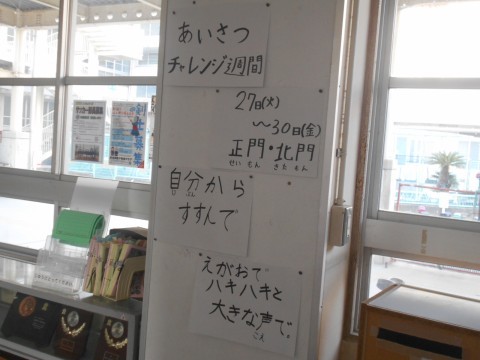 あいさつ
チャレンジ週間
27日(火)
～30日(金)
正門・北門
せいもん きたもん
自分から
ぶん
すすんで
えがおで
ハキハキと
大きな声で。
こえ